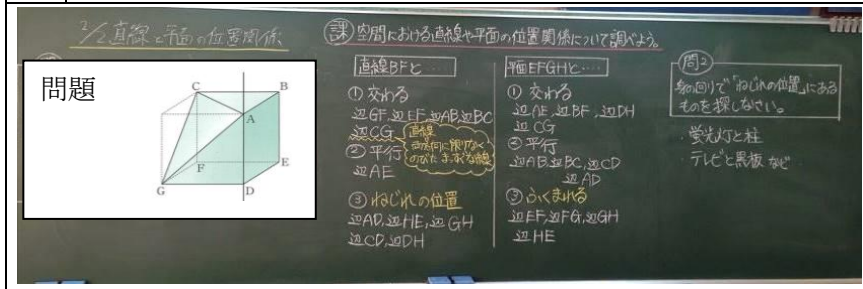 2/2 直線と平面の位置関係
課 空間における直線や平面の位置関係について調べよう。
問題
C
B
A
F
E
G
D
直線BFと…
① 交わる
辺GF,辺EF,辺AB,辺BC
辺CG
直線
両方向に限りなく
のびたまっすぐな線
② 平行
辺AE
③ ねじれの位置
辺AD,辺HE,辺GH
辺CD,辺DH
平面EFGHと…
① 交わる
辺AE,辺BF,辺DH
辺CG
② 平行
辺AB,辺BC,辺CD
辺AD
③ ふくまれる
辺EF,辺FG,辺GH
辺HE
問2
身の回りで「ねじれの位置」にある
ものを探しなさい。
・蛍光灯と柱
・テレビと黒板 など